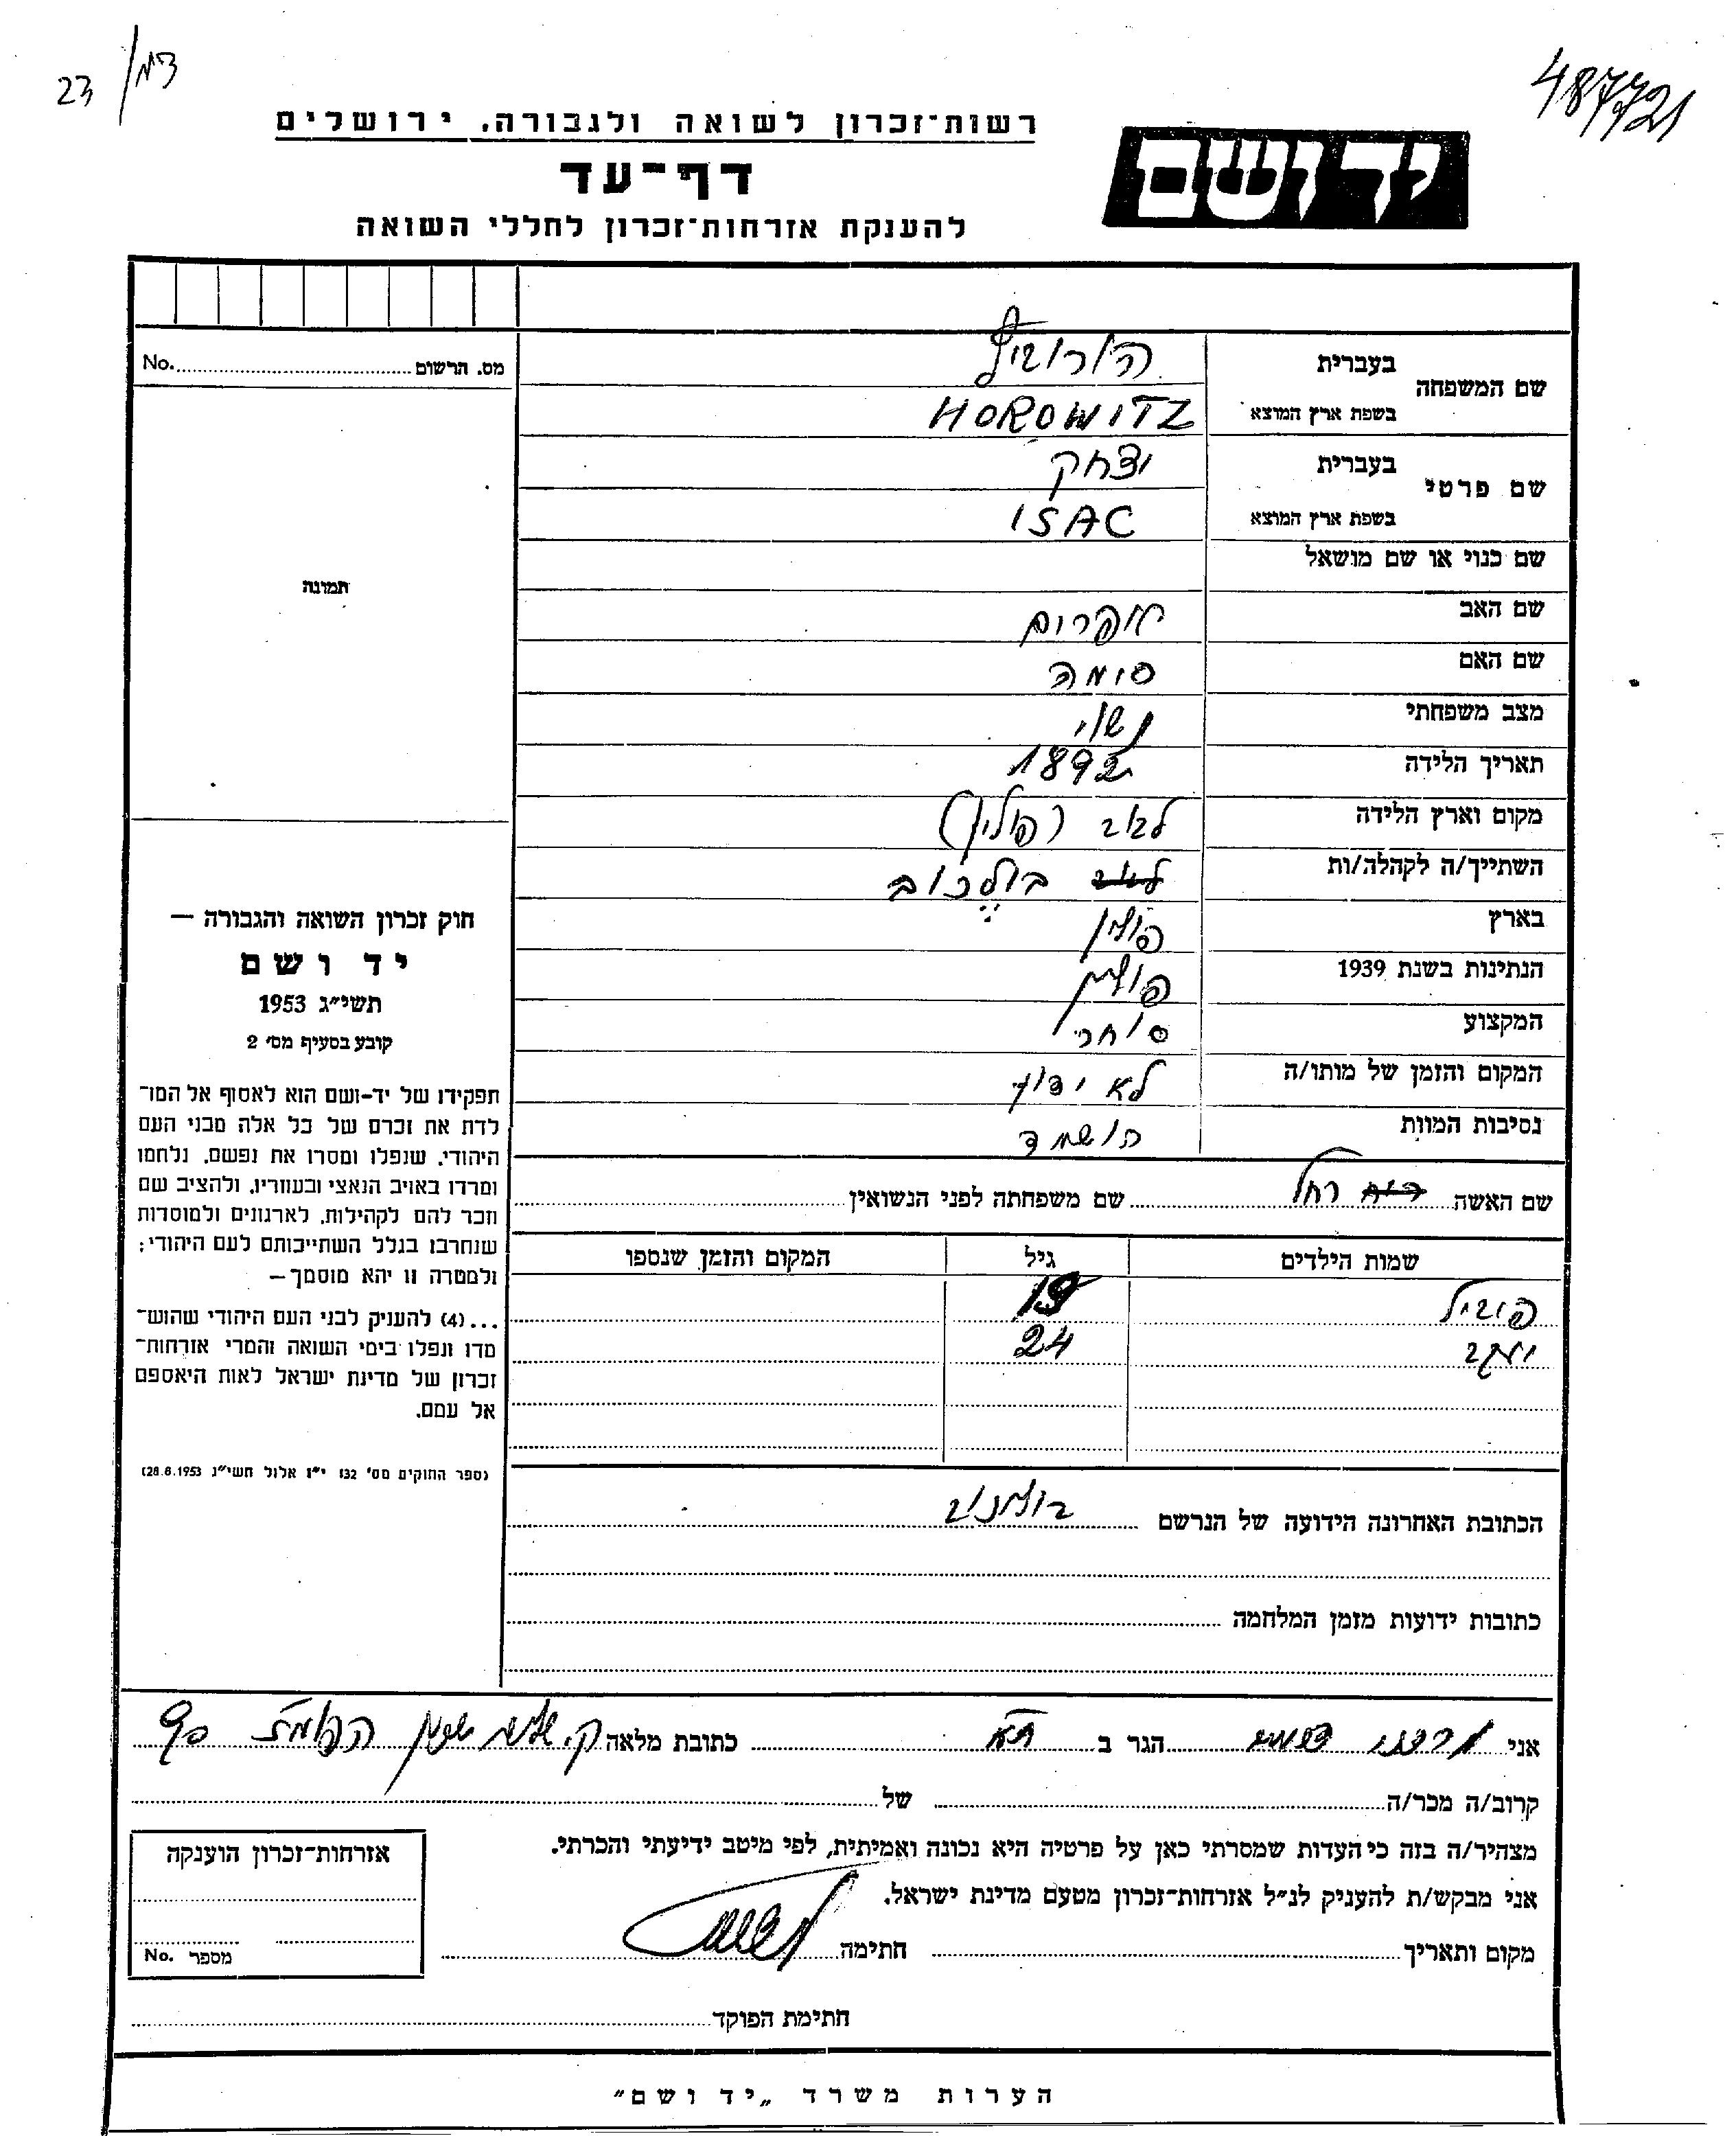 487721
23
רשות־זכרון לשואה ולגבורה, ירושלים
יד ושם
דף־עד
להענקת אזרחות־זכרון לחללי השואה
שם המשפחה
בעברית הורוביץ
בשפת ארץ המוצא HOROWITZ
שם פרטי
בעברית יצחק
בשפת ארץ המוצא ISAC
שם כנוי או שם מושאל
שם האב אפרים
שם האם סימה
מצב משפחתי נשוי
תאריך הלידה 1892
מקום וארץ הלידה לבוב (פולין)
השתייך/ה לקהלה/ות בולכוב
בארץ פולין
הנתינות בשנת 1939 פולין
המקצוע סוחר
המקום והזמן של מותו/ה לא ידוע
נסיבות המוות הושמד
שם האשה רחל שם משפחתה לפני הנשואין
שמות הילדים גיל המקום והזמן שנספו
19
יעקב 24
הכתובת האחרונה הידועה של הנרשם
כתובות ידועות מזמן המלחמה
מס. הרשום No.
תמונה
חוק זכרון השואה והגבורה —
יד ושם
תשי״ג 1953
קובע בסעיף מס׳ 2
תפקידו של יד-ושם הוא לאסוף אל המו־
לדת את זכרם של כל אלה מבני העם
היהודי, שנפלו ומסרו את נפשם, נלחמו
ומרדו באויב הנאצי ובעוזריו, ולהציב שם
וזכר להם לקהילות, לארגונים ולמוסדות
שנחרבו בגלל השתייכותם לעם היהודי;
ולמטרה זו יהא מוסמך—
...(4) להעניק לבני העם היהודי שהוש־
מדו ונפלו בימי השואה והמרי אזרחות־
זכרון של מדינת ישראל לאות היאספם
אל עמם.
(ספר החוקים מס׳ 132 י״ז אלול תשי״ג 28.8.1953)
אני הגר ב ת״א כתובת מלאה
קרוב/ה מכר/ה של
מצהיר/ה בזה כי העדות שמסרתי כאן על פרטיה היא נכונה ואמיתית, לפי מיטב ידיעתי והכרתי.
אני מבקש/ת להעניק לנ״ל אזרחות־זכרון מטעם מדינת ישראל.
מקום ותאריך חתימה
אזרחות־זכרון הוענקה
מספר No.
חתימת הפוקד
הערות משרד „יד ושם״